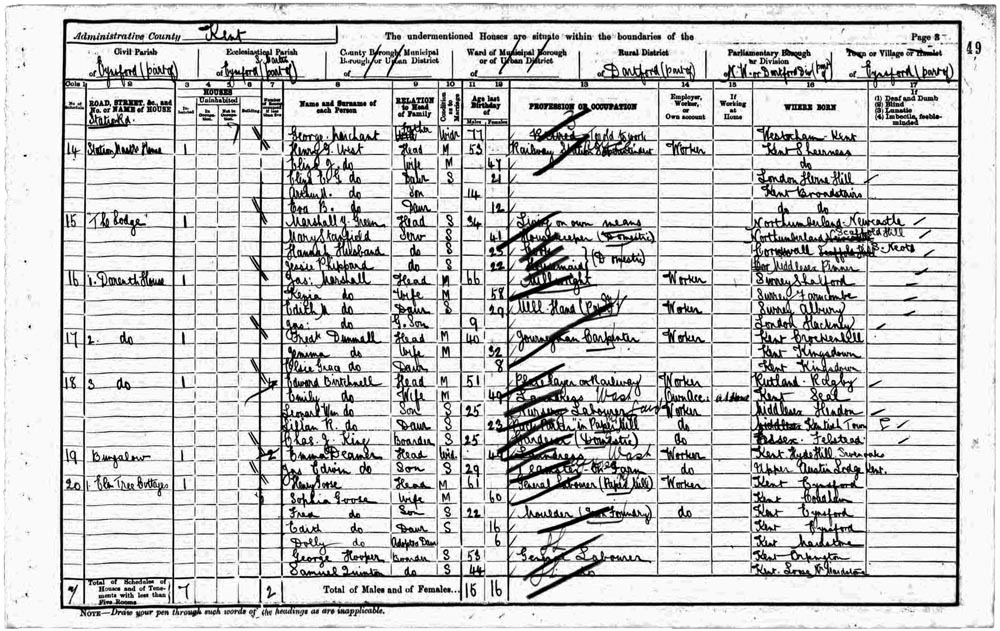 Administrative County Kent The undermentioned Houses are situate within the boundaries of the Page 8
49
Civil Parish Ecclesiastical Parish County Borough, Municipal Borough, or Urban District Ward of Municipal Borough or of Urban District Rural District Parliamentary Borough or Division Town or Village or Hamlet
of Eynsford (part of) of Eynsford (part of) of of of Dartford (part of) of N.W. or Dartford Div (part of) of Eynsford (part of)
Cols 1 2 3 4 5 6 7 8 9 10 11 12 13 14 15 16 17
No. of Schedule ROAD, STREET, &c., and No. or NAME of HOUSE HOUSES Inhabited Uninhabited In Occupation Not in Occupation Building Name and Surname of each Person RELATION to Head of Family Condition as to Marriage Age last Birthday of Males Females PROFESSION or OCCUPATION Employer, Worker, or Own account If Working at Home WHERE BORN If (1) Deaf and Dumb (2) Blind (3) Lunatic (4) Imbecile, feeble-minded
Station Rd.
George Father Widr 77 Retired Westerham Kent
14 Station Master House 1 Henry J. West Head M 53 Railway Station Worker Kent Sheerness
do Wife M 47 do
do Daur S 21 London Herne Hill
do Son 14 Kent Broadstairs
Eva B. do Daur 12 do do
15 "The Lodge" 1 Marshall J. Green Head S 34 Living on own means Northumberland Newcastle
Mary Serv S 41 Housekeeper (Domestic) Northumberland Hill
Hannah Husband do S 25 (Domestic) Cornwall
Jessie Phippard do S 22 Middlesex Pinner
16 1. Darenth House 1 Jas: Marshall Head M 66 Millwright Worker Surrey Shalford
Kezia do Wife M 58 Surrey Farncombe
Edith A do Daur S 29 Mill Hand (Paper) Worker Surrey Albury
Jas: do G. Son 9 London Hackney
17 2. do 1 Fredk Dunmall Head M 40 Journeyman Carpenter Worker Kent Crockenhill
Jemima do Wife M 32 Kent Kingsdown
Elsie do Daur 8 Kent Kingsdown
18 3 do 1 Edward Birchnell Head M 51 Plate layer on Railway Worker Rutland
Emily do Wife M 49 Laundress Wash Own Acc: at Home Kent Seal
Leonard Wm do Son S 25 Nursery Labourer Worker Middlesex Hendon
Lillian R. do Daur S 23 in Paper Mill do Kentish Town
Chas. J. King Boarder S 25 Gardener (Domestic) do Essex Felstead
19 Bungalow 1 2 Emma Deamer Head Wid. Laundress Wash Kent Hyde Hill Sevenoaks
Jas Edwin do Son S 29 Teamster on Farm do Upper Austin Lodge Kent.
20 1. Elm Tree Cottages 1 Henry Goose Head M 61 General Labourer (Paper Mill) Worker Kent Eynsford
Sophia Goose Wife M 60 Kent Cobham
Fred do Son S 22 Moulder (Iron Foundry) do Kent Eynsford
Edith do Daur S 16 Kent Eynsford
Dolly do Adopted Daur 6 Kent Maidstone
George Hooper S 53 General Labourer Kent Orpington
Samuel Quinton do S 44 do Kent. Loose Nr Maidstone
7 Total of Schedules of Houses and of Tenements with less than Five Rooms 7 2 Total of Males and of Females... 15 16
NOTE—Draw your pen through such words of the headings as are inapplicable.